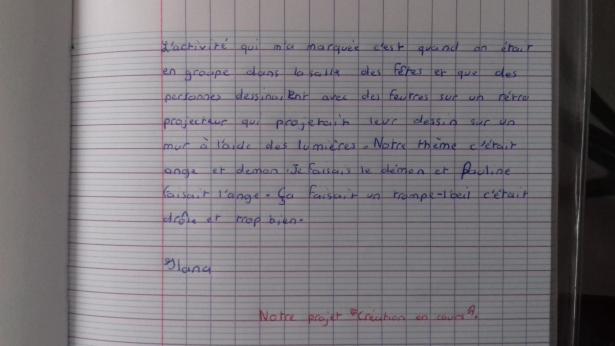 L'activité qui m'a marquée c'est quand on était
en groupe dans la salle des fêtes et que des
personnes dessinaient avec des feutres sur un rétro
projecteur qui projetait leur dessin sur un
mur à l'aide des lumières. Notre thème c'était
ange et démon. Je faisais le démon et Pauline
faisait l'ange. Ça faisait un trompe-l'oeil c'était
drôle et trop bien.
Ilana
Notre projet "Création en cours".